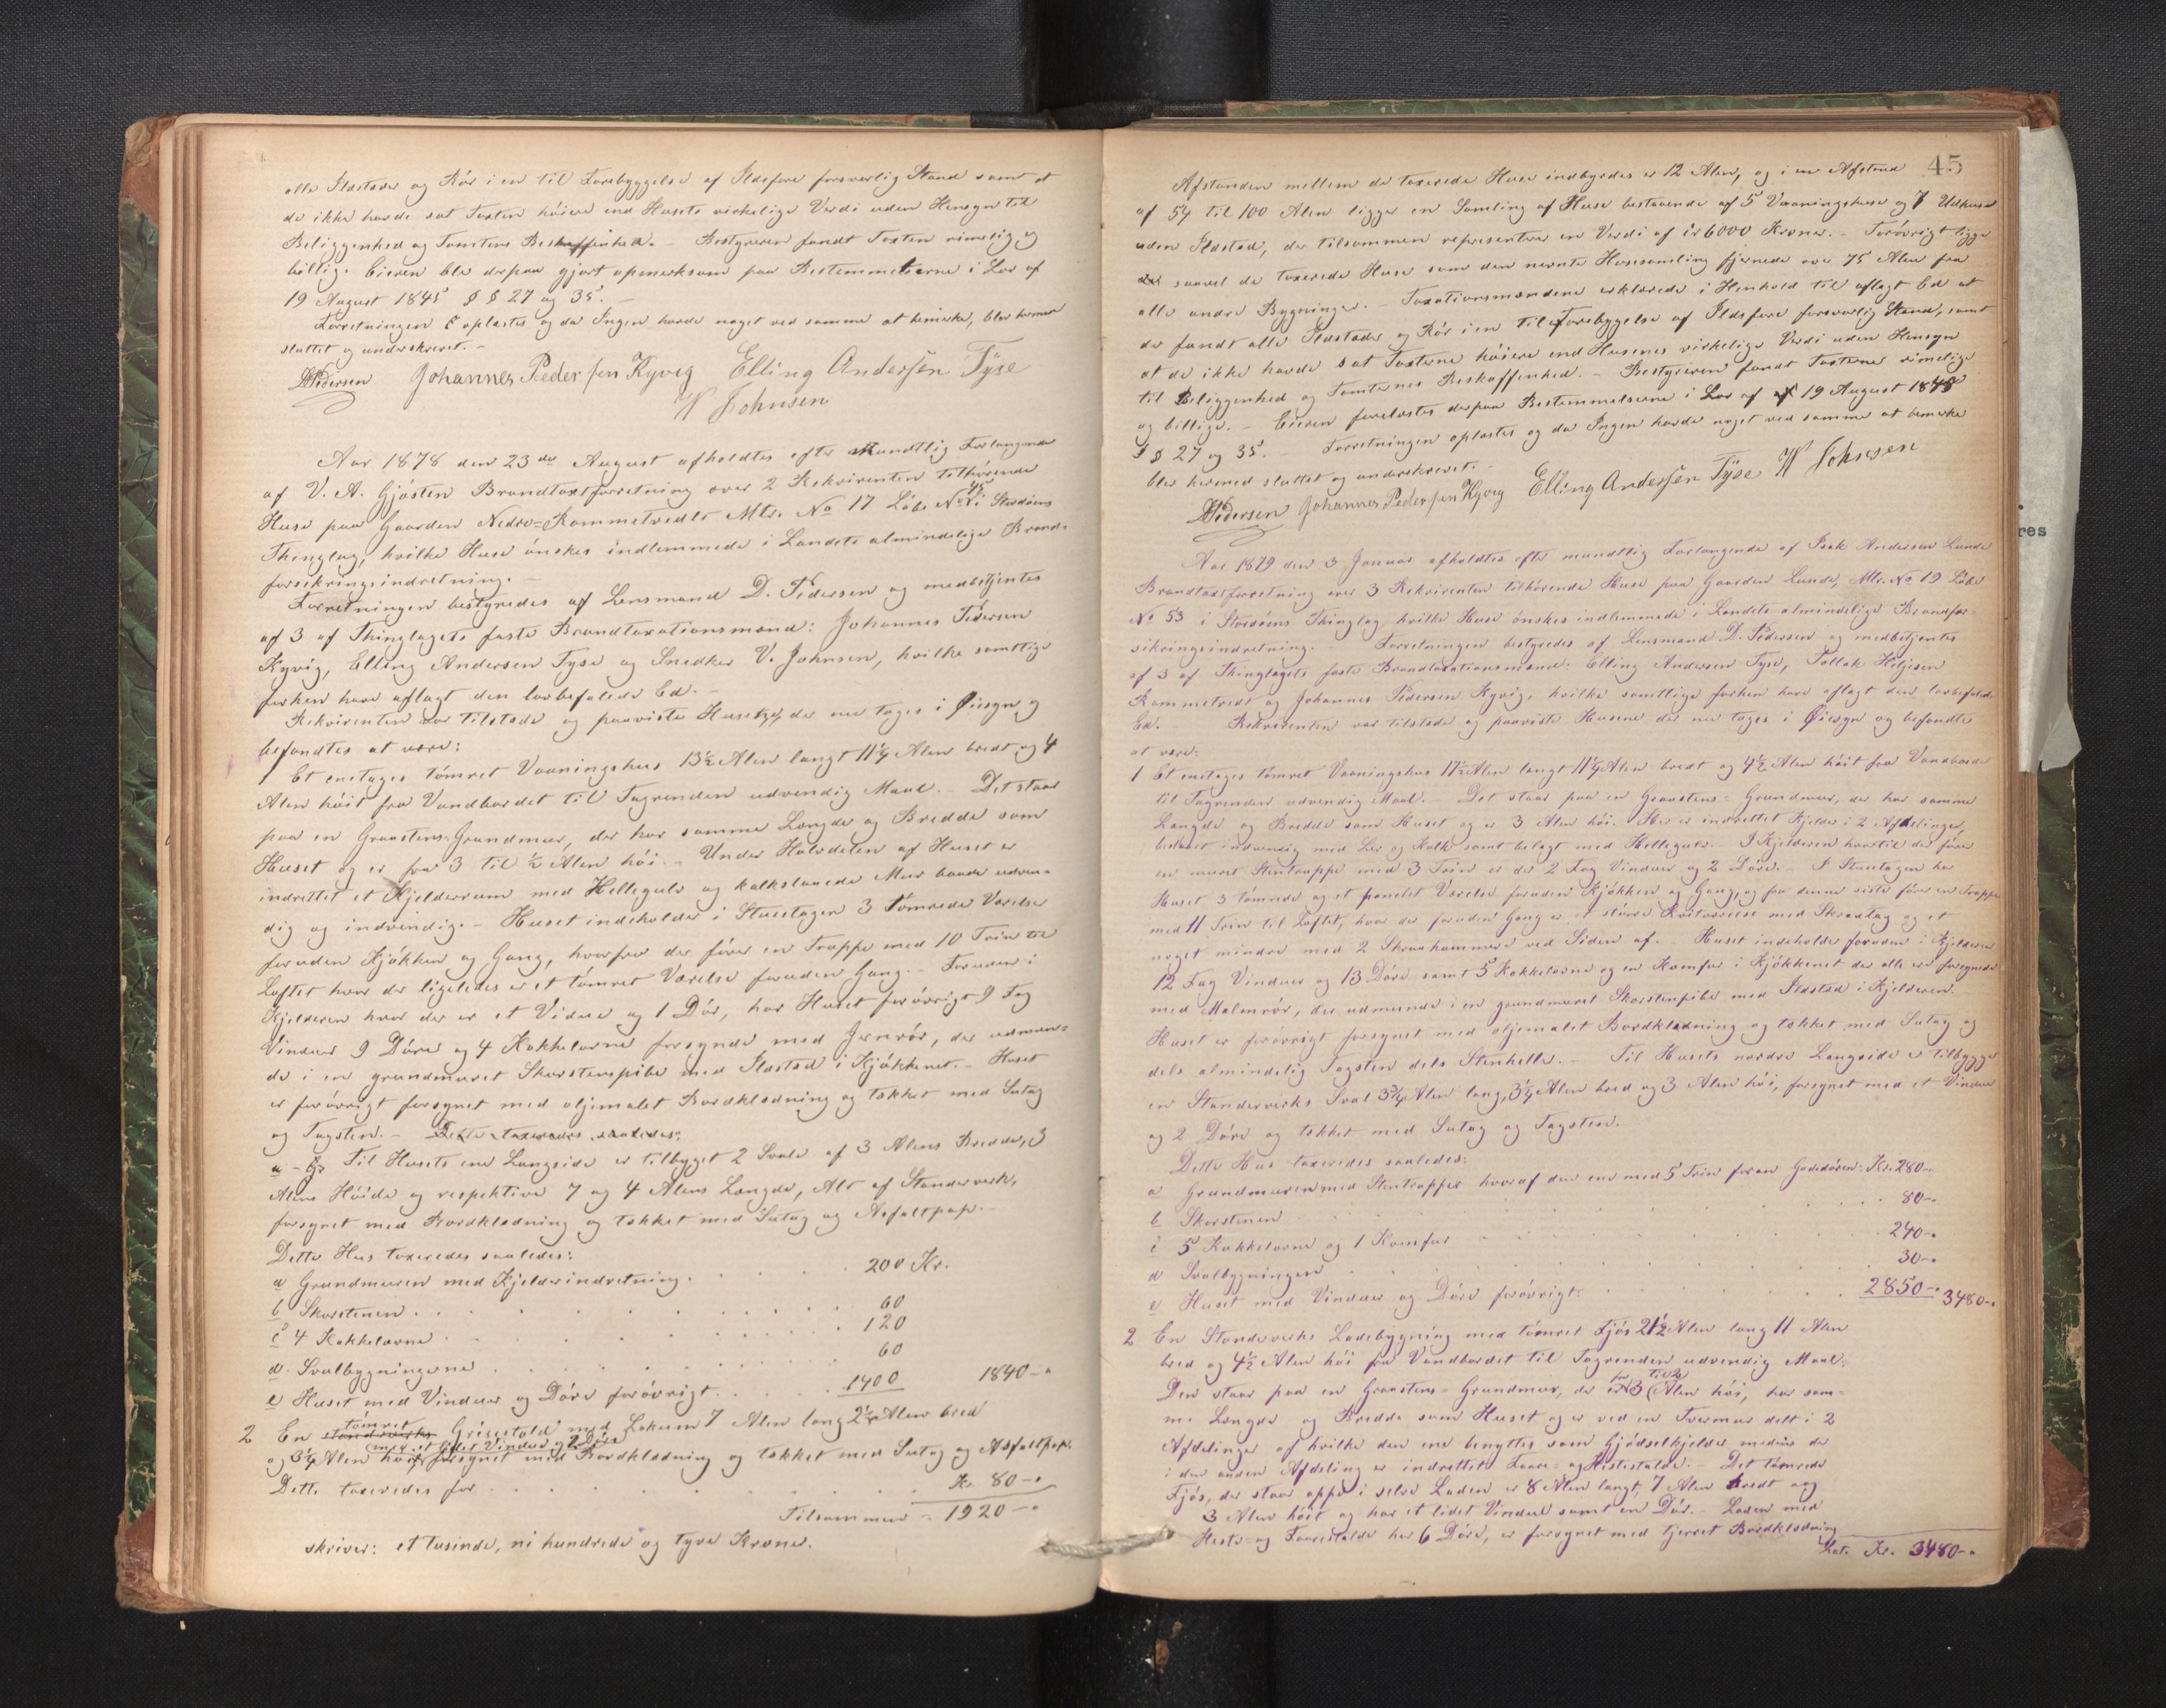 alle Ildsteder og Rör i en til Forebyggelse af Ildsfare forsvarlig Stand samt at
de ikke havde sat Taxten höiere end Husets virkelige Verdi uden Hensyn til
Beliggenhed og Tomtens Beskaffenhed. - Bestyreren fandt Taxten rimelig og
billig. Eieren ble derpaa gjort opmerksom paa Bestemmelserne i Lov af
19 August 1845 § § 27 og 35. -
Forretningen oplæstes og da Ingen havde noget ved samme at bemerke, blev hermed
sluttet og underskrevet. -
D Pedersen Johannes Pedersen Kyvig Elling Andersen Tyse
W Johnsen
Aar 1878 den 23de August afholdtes efter mundtlig Forlangende
af V. A. Gjösten Brandtaxtforretning over 2 Rekvirenten tilhörende
Huse paa Gaarden Nedre-Rommetvedt Mtr. No 17 Löbe No 45 i Stordöens
Thinglag, hvilke Huse önskes indlemmede i Landets almindelige Brand-
forsikringsindretning. -
Forretningen bestyredes af Lensmand D. Pedersen og medbetjentes
af 3 af Thinglagets faste Brandtaxationsmænd: Johannes Pedersen
Kyvig, Elling Andersen Tyse og Snedker V. Johnsen, hvilke samtlige
forhen have aflagt den lovbefalede Ed. -
Rekvirenten var tilstede og paaviste Husene, der nu toges i Öiesyn og
befandtes at være:
1 Et enetages tömret Vaaningshus 13½ Alen langt 11¼ Alen bredt og 4
Alen höit fra Vandbordet til Tagrenden udvendig Maal. - Det staar
paa en Graastens-Grundmur, der har samme Længde og Bredde som
Huset og er fra 3 til ½ Alen höi. - Under Halvdelen af Huset er
indrettet et Kjelderrum med Hellegulv og kalkslaaede Mur baade udven-
dig og indvendig. - Huset indeholder i Stueetagen 3 tömrede Værelser
foruden Kjökken og Gang, hvorfra der förer en Trappe med 10 Trin til
Loftet hvor der ligeledes er et tömret Værelse foruden Gang. - Foruden i
Kjelderen hvor der er et Vindue og 1 Dör, har Huset forövrigt 9 Fag
Vinduer 9 Döre og 4 Kakkelovne forsynede med Jernrör, der udmun-
de i en grundmuret Skorstenspibe med Ildsted i Kjökkenet. - Huset
er forövrigt forsynet med oljemalet Bordklædning og tækket med Sutag
og Tagsten. - Dette taxeredes saaledes:
Til Husets ene Langside er tilbygget 2 Svale af 3 Alens Bredde, 3
Alens Höide og respektive 7 og 4 Alens Længde, Alt af Standerverk,
forsynet med Bordklædning og tækket med Sutag og Asfaltpap. -
Dette Hus taxeredes saaledes:
a Grundmuren med Kjelderindretning. 200 Kr.
b Skorstenen 60
c 4 Kakkelovne 120
d Svalbygningerne 60
e Huset med Vinduer og Döre forövrigt 1400 1840-"
2 En standverks tömret Grisestald med Lokum 7 Alen lang 2½ Alen bred
med et lidet Vindue og 2 Döre
og 3¼ Alen höi forsynet med Bordklædning og tækket med Sutag og Asfaltpap.
Dette taxeredes for Kr. 80-"
Tilsammen 1920-"
skriver: et tusinde, ni hundrede og tyve Kroner.
45
Afstanden mellem de taxerede Huse indbyrdes er 12 Alen, og i en Afstand
af 54 til 100 Alen ligger en Samling af Huse bestaaende af 5 Vaaningshuse og 7 Udhuse
uden Ildsted, der tilsammen representerer en Verdi af ca 6000 Kroner. - Forövrigt ligger
saavel de taxerede Huse som den nevnte Husesamling fjernede over 75 Alen fra
alle andre Bygninger. - Taxationsmændene erklærede i Henhold til aflagt Ed at
de fandt alle Ildsteder og Rör i en til Forebyggelse af Ildsfare forsvarlig Stand, samt
at de ikke havde sat Taxterne höiere end Husenes virkelige Verdi uden Hensyn
til Beliggenhed og Tomternes Beskaffenhed. - Bestyreren fandt Taxterne rimelige
og billige. - Eieren forelæstes derpaa Bestemmelserne i Lov af 19 August 1845
§ § 27 og 35. - Forretningen oplæstes og da Ingen havde noget ved samme at bemerke
blev hermed sluttet og underskrevet. -
D Pedersen Johannes Pedersen Kyvig Elling Andersen Tyse W Johnsen
Aar 1879 den 3 Januar afholdtes efter mundtlig Forlangende af Isak Andersen Lunde
Brandtaxtforretning over 3 Rekvirenten tilhörende Huse paa Gaarden Lunde, Mtr. No 19 Löbe
No 53 i Stordöens Thinglag hvilke Huse önskes indlemmede i Landets almindelige Brandfor-
sikringsindretning. - Forretningen bestyredes af Lensmand D. Pedersen og medbetjentes
af 3 af Thinglagets faste Brandtaxationsmænd: Elling Andersen Tyse, Tollak Helgesen
Rommetvedt og Johannes Pedersen Kyvig, hvilke samtlige forhen have aflagt den lovbefalede
Ed. - Rekvirenten var tilstede og paaviste Husene der nu toges i Öiesyn og befandtes
at være:
1 Et enetages tömret Vaaningshus 17½ Alen langt 11¼ Alen bredt og 4½ Alen höit fra Vandbordet
til Tagrenden udvendig Maal. - Det staar paa en Graastens-Grundmur, der har samme
Længde og Bredde som Huset og er 3 Alen höi. Her er indrettet Kjelder i 2 Afdelinger,
indvendig med Ler og Kalk samt belagt med Hellegulv. - I Kjelderen hvortil der förer
en muret Stentrappe med 3 Trin er der 2 Fag Vinduer og 2 Döre. - I Stueetagen har
Huset 3 tömrede og et panelet Værelse foruden Kjökken og Gang, og fra denne sidste förer en Trappe
med 11 Trin til Loftet, hvor der foruden Gang er et större Kvistværelse med Skraatag og et
noget mindre med 2 Skraakammere ved Siden af. - Huset indeholder foruden i Kjelderen
12 Fag Vinduer og 13 Döre samt 5 Kakkelovne og en Komfur i Kjökkenet der alle ere forsynede
med Malmrör, der udmunde i en grundmuret Skorstenspibe med Ildsted i Kjelderen.
Huset er forövrigt forsynet med oljemalet Bordklædning og tækket med Sutag og
dels almindelig Tagsten dels Stenhelle. - Til Husets nordre Langside er tilbygget
en Standerverks Sval 3¾ Alen lang, 3¼ Alen bred og 3 Alen höi, forsynet med et Vindue
og 2 Döre og tækket med Sutag og Tagsten.
Dette Hus taxeredes saaledes:
a Grundmuren med Stentrapper hvoraf den ene med 5 Trin foran Gadedören: Kr. 280-"
b Skorstenen 80-"
c 5 Kakkelovne og 1 Komfur 240-"
d Svalbygningen 30-"
e Huset med Vinduer og Döre forövrigt: 2850-" 3480-"
2 En Standverks Ladebygning med tömret Fjös 21½ Alen lang 11 Alen
bred og 4½ Alen höi fra Vandbordet til Tagrenden udvendig Maal.
Den staar paa en Graastens-Grundmur, der er 3 Alen höi, har sam-
me Længde og Bredde som Huset og er ved en Tvermur delt i 2
Afdelinger af hvilke den ene benyttes som Gjödselkjelder medens der
i den anden Afdeling er indrettet Faare- og Hestestalde. - Det tömrede
Fjös, der staar oppe i selve Laden er 8 Alen langt, 7 Alen bredt og
3 Alen höit og har et lidet Vindue samt en Dör. - Laden med
Heste- og Faarestalde har 6 Döre, er forsynet med tjerret Bordklædning
Lat. Kr. 3480-"
res